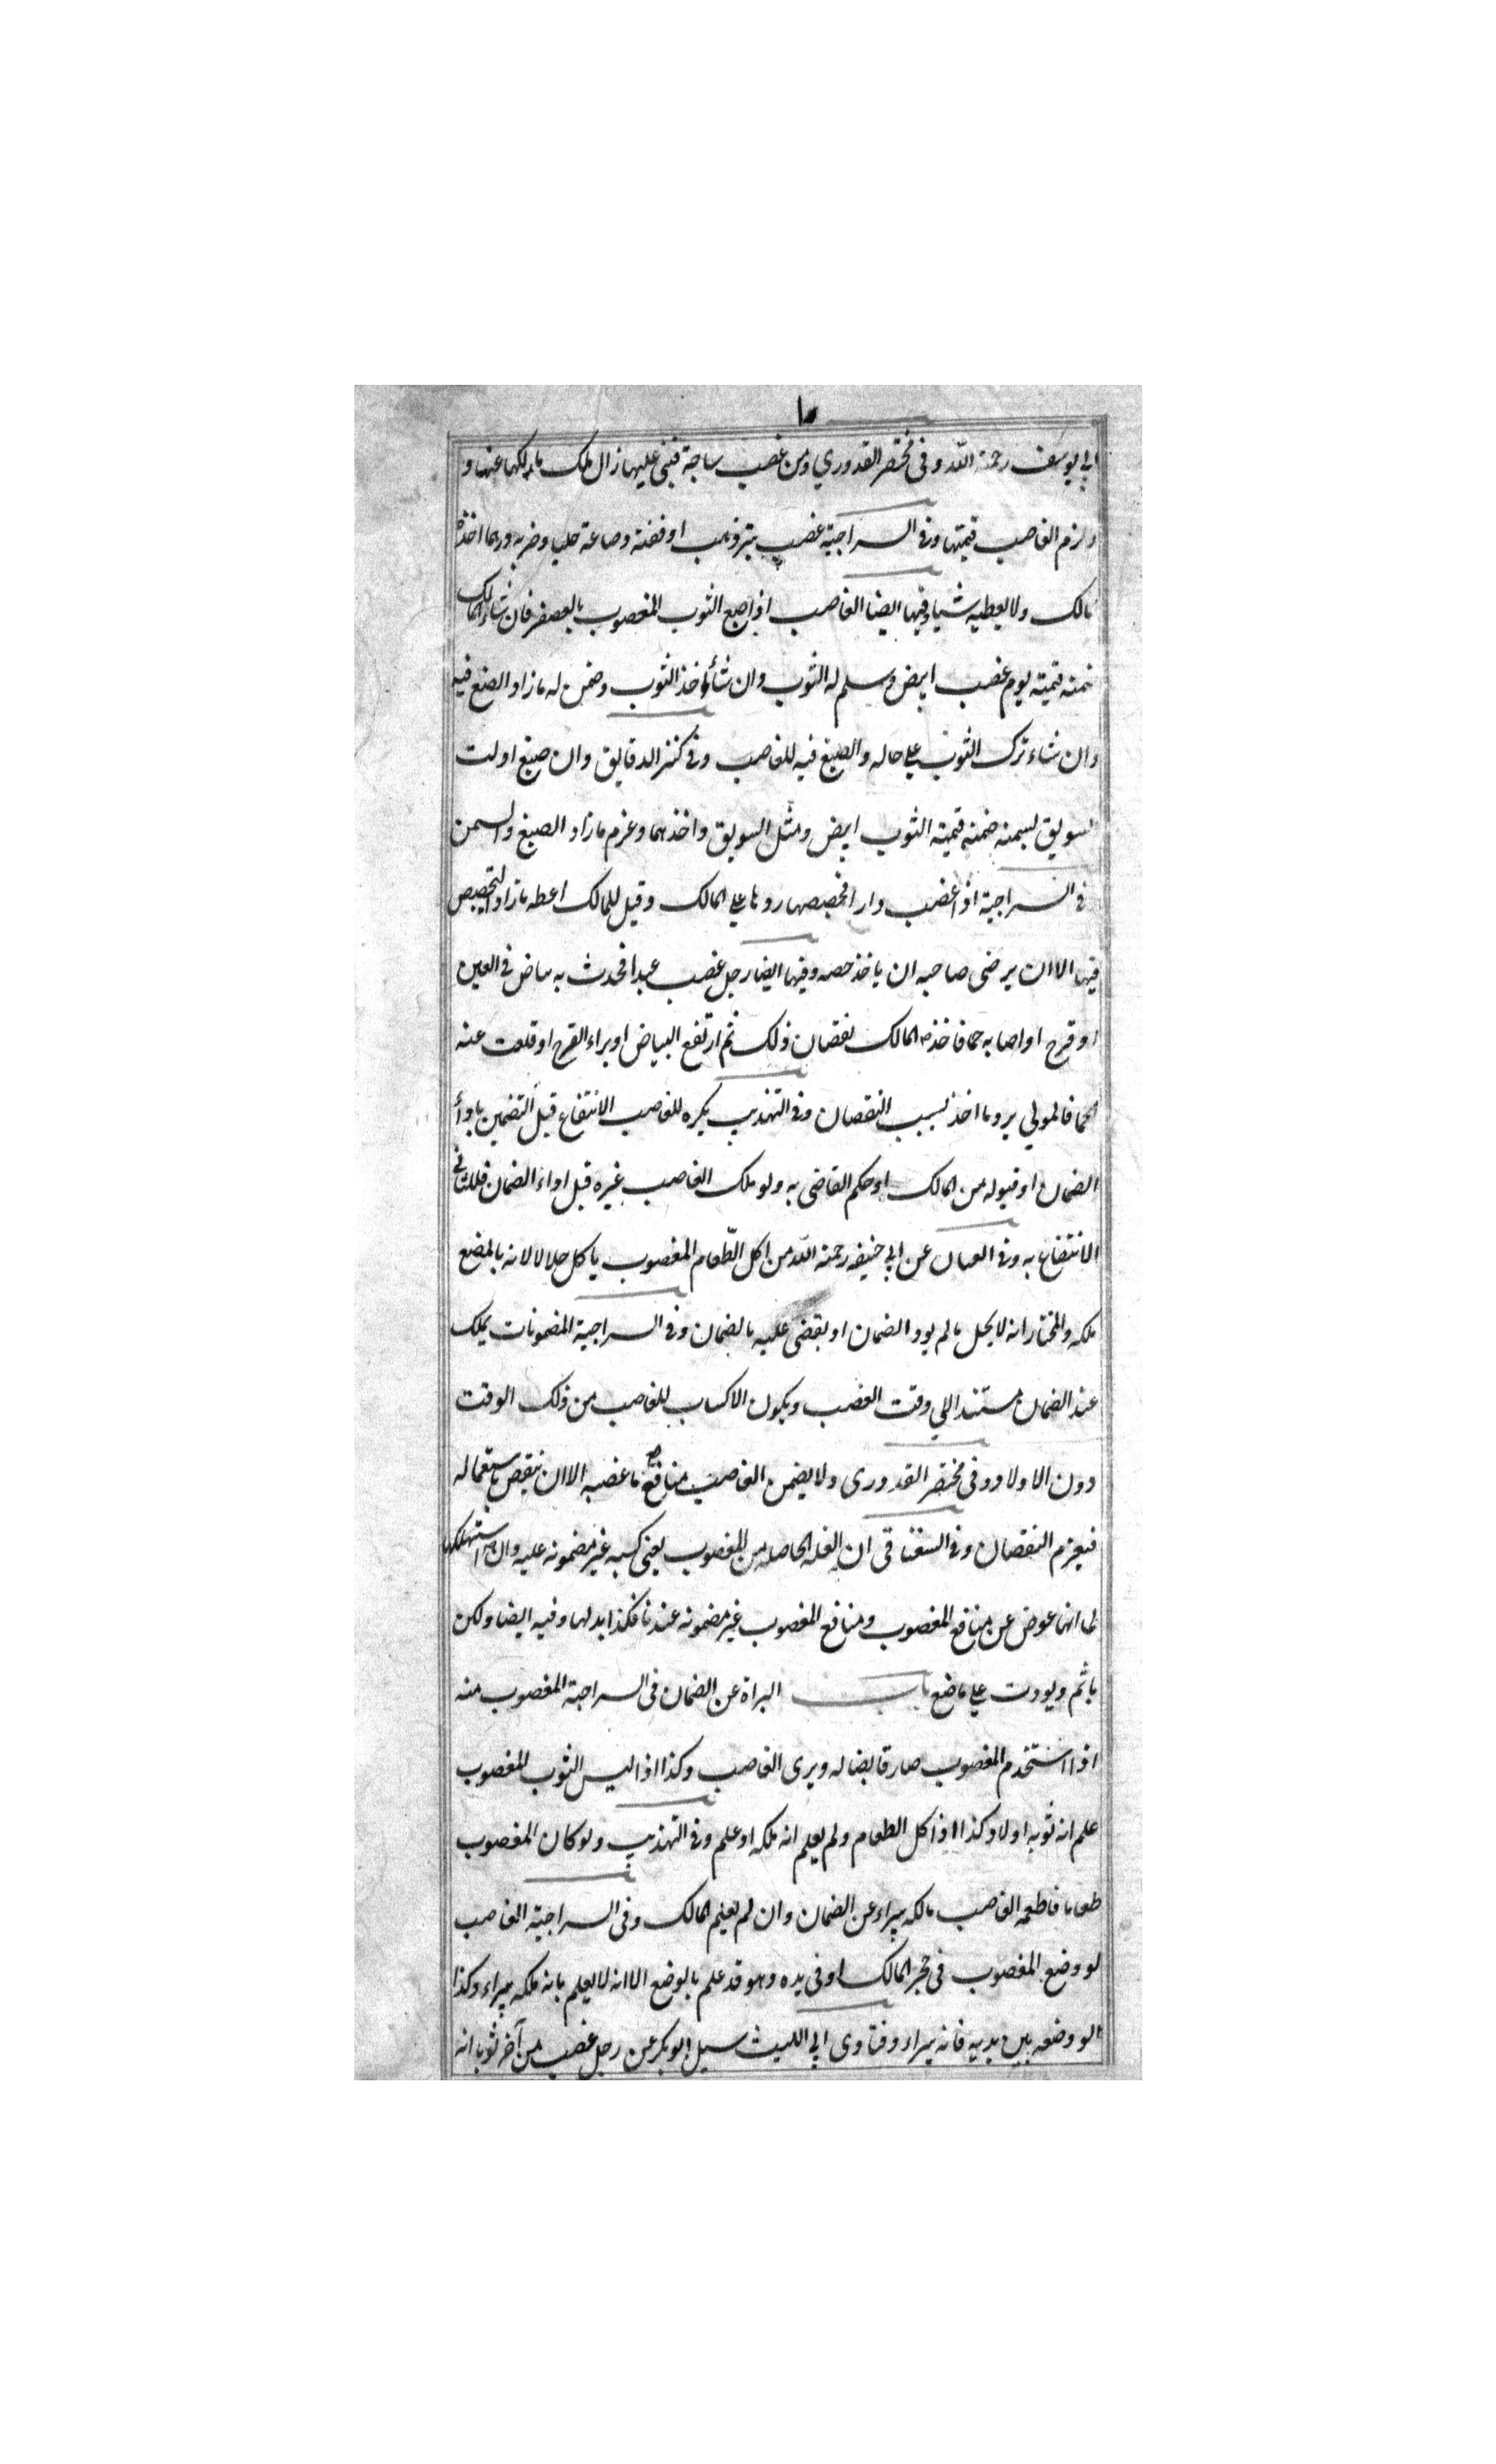 ابي يوسف رحمة الله وفى مختصر القدوري ومن غصب ساجة فبنى عليها زال ملك مالكها عنها و
ولزم الغاصب قيمتها وفى السراجية غصب ذهب او فضة وصاغه حليا وضربه درهما اخذه
مالك ولا يعطيه شيا وفيها ايضا الغاصب اذا صبع الثوب المغصوب بالعصفر فان شاء المالك
ضمنه قيمته يوم غصب ابيض وسلم له الثوب وان شاء اخذ الثوب وضمن له ما زاد الصبغ فيه
وان شاء ترك الثوب على حاله والصبغ فيه للغاصب وفى كنز الدقايق وان صبغ او لت
السويق بسمنه ضمنه قيمته الثوب ابيض ومثل السويق واخذهما وغرم ما زاد الصبغ والسمن
فى السراجية اذا غصب دارا فجصصها ردها على المالك وقيل للمالك اعطه ما زاد التجصيص
فيها الا ان يرضى صاحبه ان ياخذ جصه وفيها ايضا رجل غصب عبدا فحدث به بياض فى العين
او قرح او اصابه حما فاخذه المالك نقصان ذلك ثم ارتفع البياض او براء القرح او قلعت عنه
الحما فالمولي يرد ما اخذ بسبب النقصان وفى التهذيب يكره للغاصب الانتفاع قبل التضمين باداء
الضمان او قبوله من المالك او حكم القاضى به ولو ملك الغاصب غيره قبل اداء الضمان فللثانى
الانتفاع به وفى عن ابي حنيفه رحمة الله من اكل الطعام المغصوب ياكل حلالا لانه بالمضع
ملكه والمختار انه لا يحل ما لم يود الضمان او يقضى عليه بالضمان وفى السراجية المضمونات يملك
عند الضمان مستندا الي وقت الغصب ويكون الاكساب للغاصب من ذلك الوقت
دون الاولاد وفى مختصر القدورى ولا يضمن الغاصب منافع ما غصبه الا ان ينقص باستعماله
فيعزم النقصان وفى السغناقى ان الغله الحاصله من المغصوب يعنى كسبه غير مضمونه عليه وان استهلكها
لما انها عوض عن منافع المغصوب ومنافع المغصوب غير مضمونه عندنا فكذا بدلها وفيه ايضا ولكن
ياثم ويودت على ما ضع باب البراة عن الضمان فى السراجية المغصوب منه
اذا استخدم المغصوب صار قابضا له ويرى الغاصب وكذا اذا لبس الثوب المغصوب
علم انه ثوبه او لا وكذا اذا كل الطعام ولم يعلم انه ملكه او علم وفى التهذيب ولو كان المغصوب
طعاما فاطعمه الغاصب مالكه يبراء عن الضمان وان لم يعلم المالك وفى السراجية الغاصب
لو وضع المغصوب فى حجر المالك او فى يده وهو قد علم بالوضع الا انه لا يعلم بانه ملكه يبراء وكذا
لو وضعه بين يديه فانه يبراء وفتاوى ابي الليث سيل ابو بكر عن رجل غصب من آخر ثوبا انه